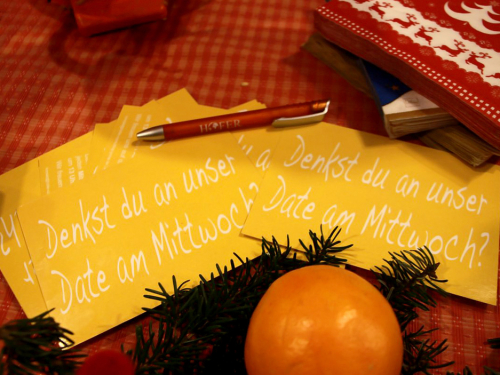 HOFER
Denkst du an unser
Date am Mittwoch?
Denkst du an unser
Date am Mittwoch?